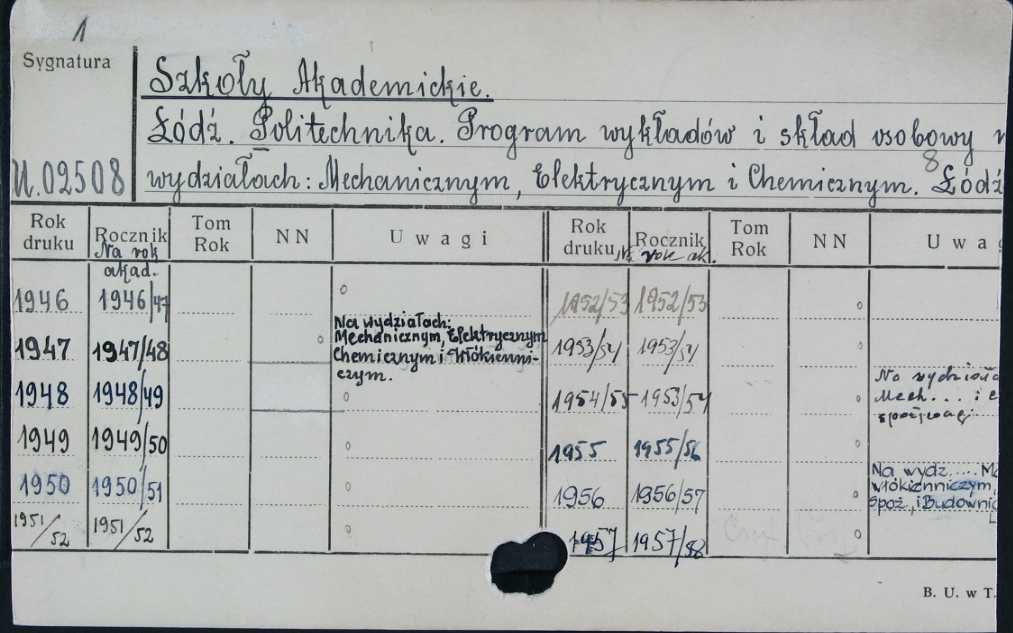 1
Sygnatura
Szkoły Akademickie.
Łódź. Politechnika. Program wykładów i skład osobowy n
U.02508
wydziałach: Mechanicznym, Elektrycznym i Chemicznym. 8 Łódź
Rok druku Rocznik Tom Rok NN Uwagi Rok druku Rocznik Tom Rok NN Uwag
Na rok akad. Na rok ak.
1946 1946/47 1952/53 1952/53
Na wydziałach:
1947 1947/48 Mechanicznym, Elektrycznym 1953/54 1953/54
Chemicznym i Włókienni-
czym. Na wydziała
1948 1948/49 1954/55 1953/54 Mech... i
spożywcz
1949 1949/50 1955 1955/56
Na wydz.....Me
1950 1950/51 1956 1956/57 włókienniczym,
Spoż., i Budownic
1951/52 1951/52 1957 1957/58
B. U. w T.